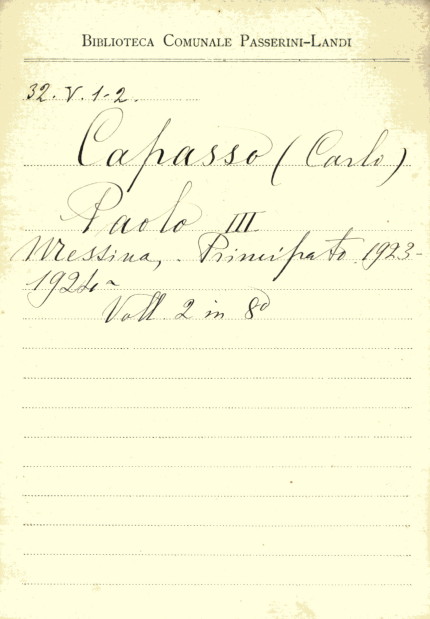 BIBLIOTECA COMUNALE PASSERINI-LANDI
32. V. 1-2.
Capasso (Carlo)
Paolo III
Messina, Principato 1923-
1924
Voll. 2 in 8º